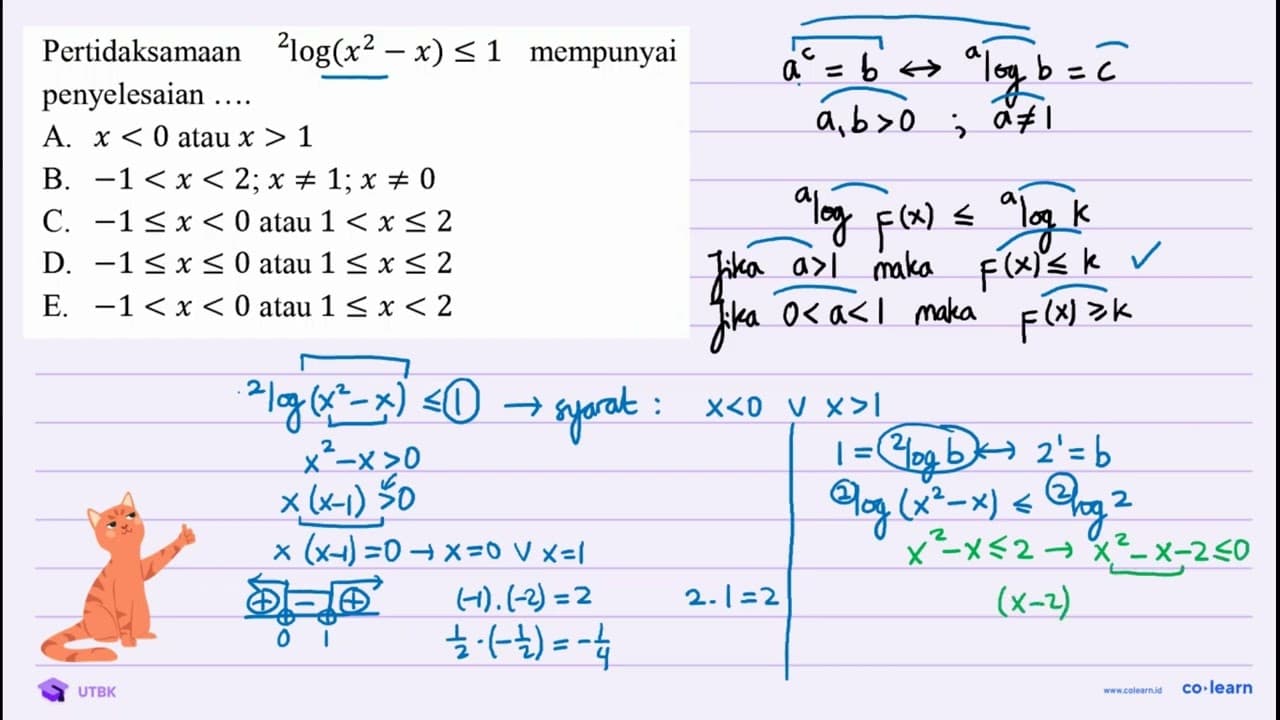 Pertidaksamaan ²log(x² − x) ≤ 1 mempunyai
penyelesaian ….
A. x < 0 atau x > 1
B. −1 < x < 2; x ≠ 1; x ≠ 0
C. −1 ≤ x < 0 atau 1 < x ≤ 2
D. −1 ≤ x ≤ 0 atau 1 ≤ x ≤ 2
E. −1 < x < 0 atau 1 ≤ x < 2
aᶜ = b ↔ ᵃlog b = c
a, b > 0 ; a ≠ 1
ᵃlog F(x) ≤ ᵃlog k
Jika a>1 maka F(x) ≤ k ✓
Jika 0<a<1 maka F(x) ≥ k
²log(x²−x) ≤ 1 → syarat : x<0 ∨ x>1
x²−x>0
x(x−1)>0
x(x−1)=0 → x=0 ∨ x=1
+ − +
0 1
(−1).(−2) = 2
2.1=2
½.(−½) = −¼
1 = ²log b ↔ 2¹ = b
²log(x²−x) ≤ ²log 2
x²−x≤2 → x²−x−2≤0
(x−2)
UTBK
www.colearn.id
co·learn